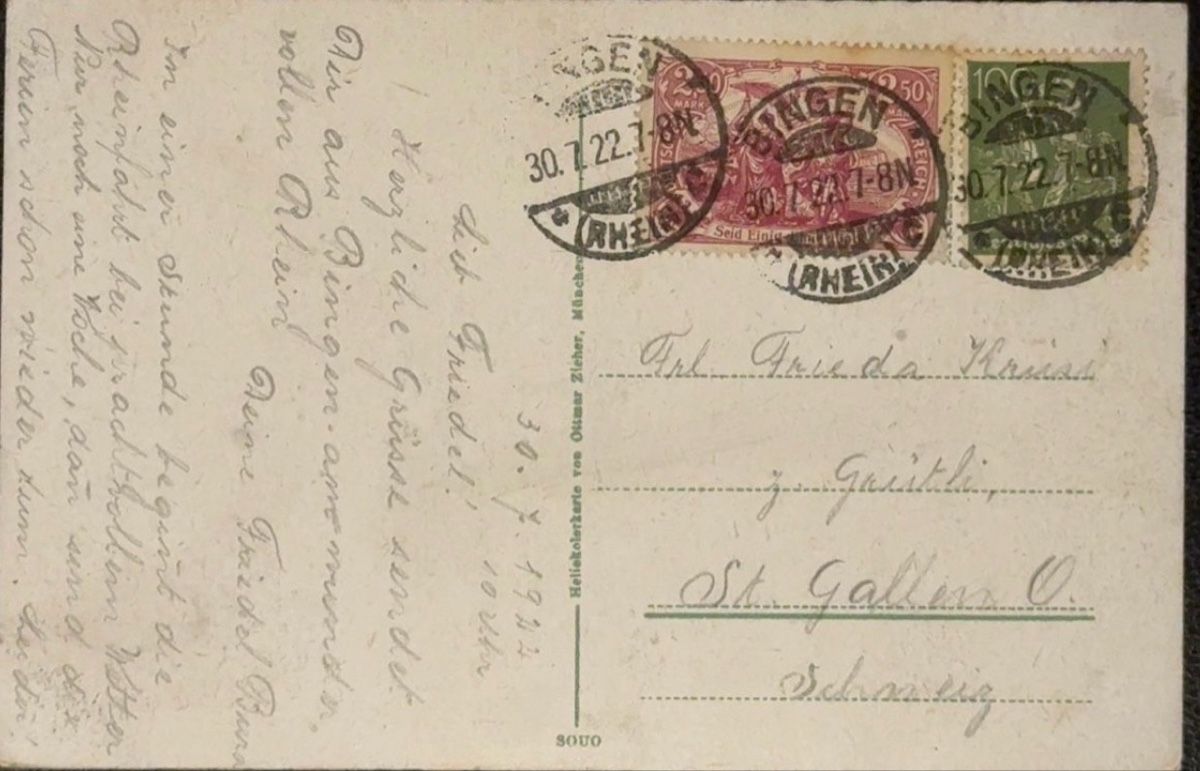 30. 7. 1922
10 Uhr
Lieb Friedel!
Herzliche Grüsse sendet
Dir aus Bingen am munter,
vollen Rhein
Deine Friedel
In einer Stunde begint die
Rheinfahrt bei prachtvollem Wetter
Nur noch eine Woche, dan sind die
Ferien schon wieder rum. Leider!
Heliokolorkarte von Ottmar Zieher, München
SOUO
2,50 MARK 2,50
REICH
Seid Einig
100
BINGEN
30.7.22.7-8N
(RHEIN)
BINGEN
30.7.22.7-8N
(RHEIN) C
BINGEN
30.7.22.7-8N
(RHEIN) C
Frl. Frieda Krüsi
z. Grütli,
St. Gallen O.
Schweiz